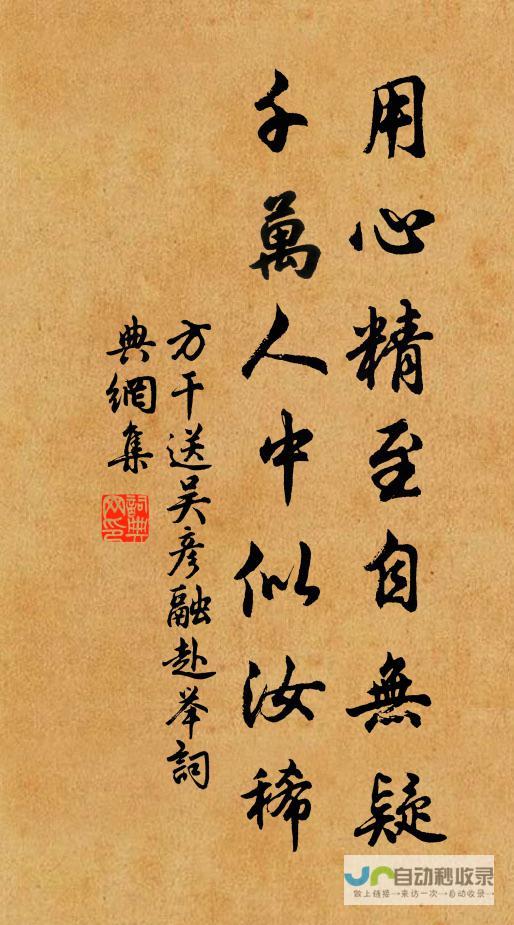 用心精至自無疑
千萬人中似汝稀
方干送吴彦融赴举詞
典網集
詞典网印
自动秒收录
做上链接→来访一次→自动收录